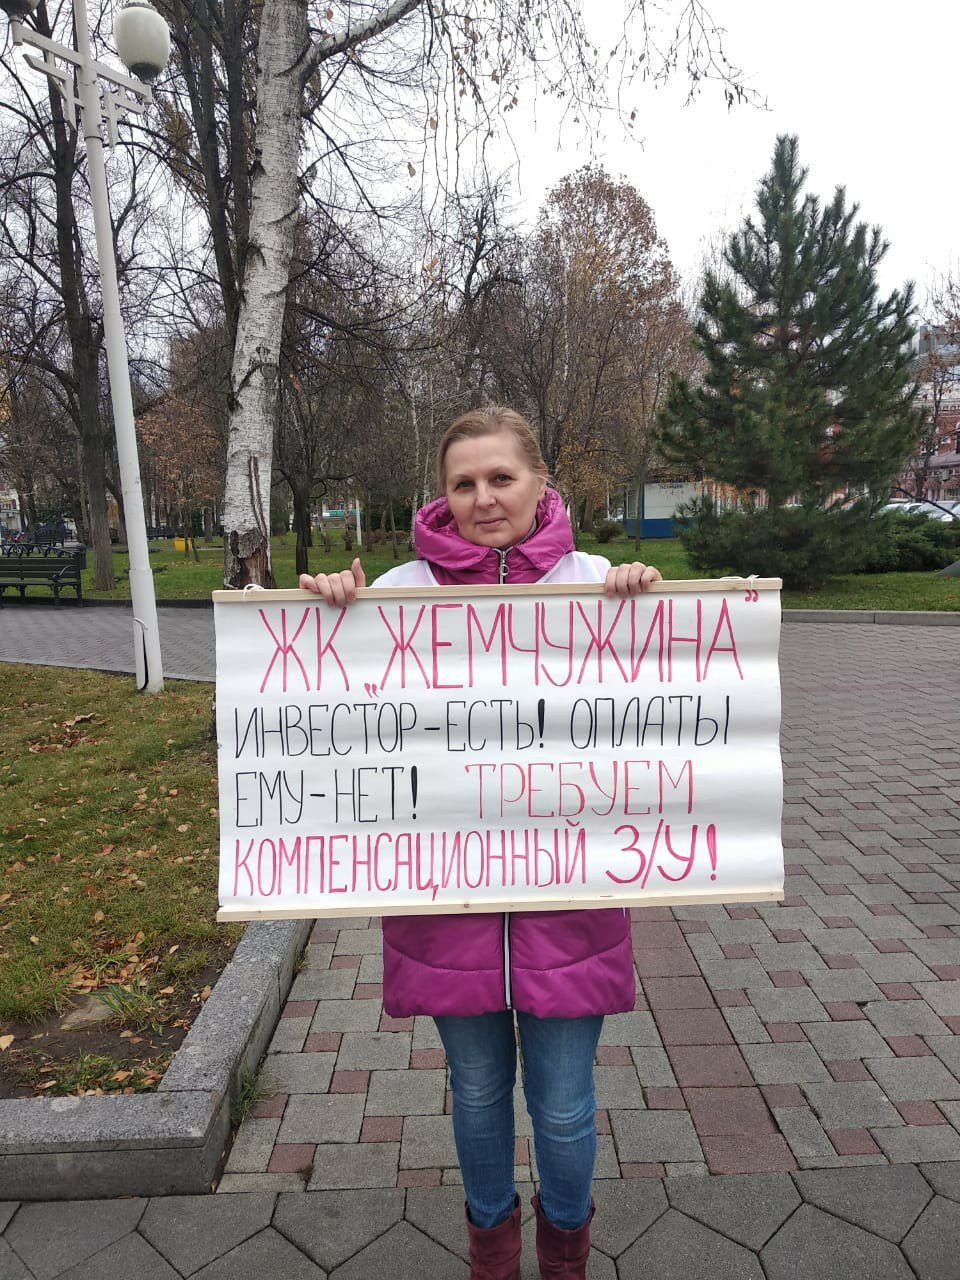 ЖК „ЖЕМЧУЖИНА”
ИНВЕСТОР-ЕСТЬ! ОПЛАТЫ
ЕМУ-НЕТ! ТРЕБУЕМ
КОМПЕНСАЦИОННЫЙ З/У!